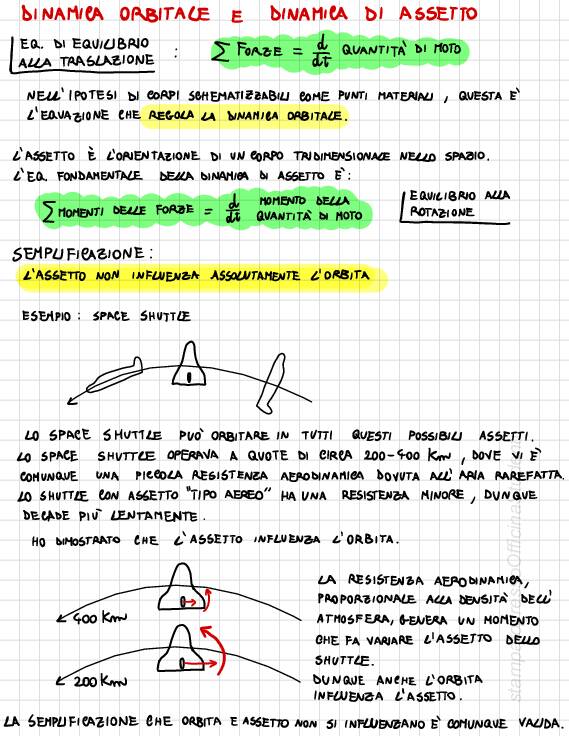 DINAMICA ORBITALE E DINAMICA DI ASSETTO
EQ. DI EQUILIBRIO
ALLA TRASLAZIONE : Σ FORZE = d/dt QUANTITÀ DI MOTO
NELL'IPOTESI DI CORPI SCHEMATIZZABILI COME PUNTI MATERIALI, QUESTA E'
L'EQUAZIONE CHE REGOLA LA DINAMICA ORBITALE.
L'ASSETTO È L'ORIENTAZIONE DI UN CORPO TRIDIMENSIONALE NELLO SPAZIO.
L'EQ. FONDAMENTALE DELLA DINAMICA DI ASSETTO È:
Σ MOMENTI DELLE FORZE = d/dt MOMENTO DELLA QUANTITÀ DI MOTO
EQUILIBRIO ALLA
ROTAZIONE
SEMPLIFICAZIONE:
L'ASSETTO NON INFLUENZA ASSOLUTAMENTE L'ORBITA
ESEMPIO: SPACE SHUTTLE
LO SPACE SHUTTLE PUÒ ORBITARE IN TUTTI QUESTI POSSIBILI ASSETTI.
LO SPACE SHUTTLE OPERAVA A QUOTE DI CIRCA 200-400 Km, DOVE VI È
COMUNQUE UNA PICCOLA RESISTENZA AERODINAMICA DOVUTA ALL'ARIA RAREFATTA.
LO SHUTTLE CON ASSETTO "TIPO AEREO" HA UNA RESISTENZA MINORE, DUNQUE
DECADE PIÙ LENTAMENTE.
HO DIMOSTRATO CHE L'ASSETTO INFLUENZA L'ORBITA.
400 Km
200 Km
LA RESISTENZA AERODINAMICA,
PROPORZIONALE ALLA DENSITÀ DELL'
ATMOSFERA, GENERA UN MOMENTO
CHE FA VARIARE L'ASSETTO DELLO
SHUTTLE.
DUNQUE ANCHE L'ORBITA
INFLUENZA L'ASSETTO.
LA SEMPLIFICAZIONE CHE ORBITA E ASSETTO NON SI INFLUENZANO È COMUNQUE VALIDA.